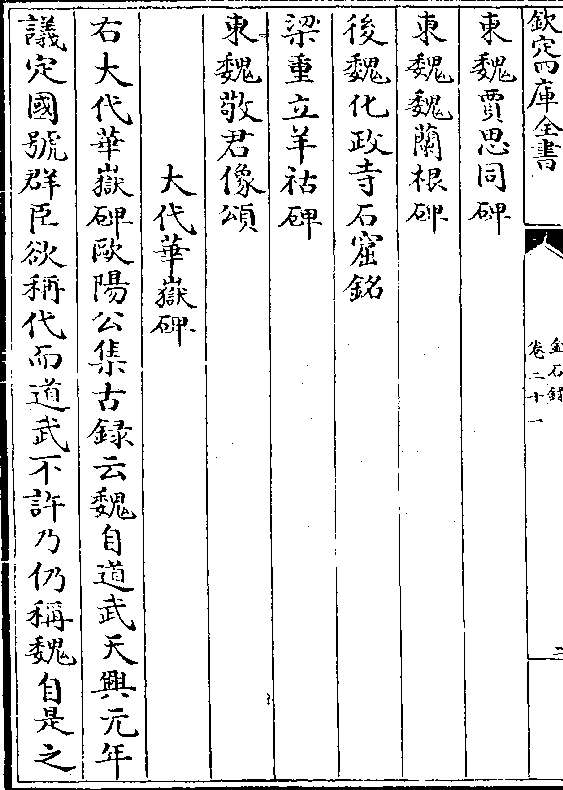 欽定四庫全書
金石錄
卷二十一
二
東魏賈思同碑
東魏魏蘭根碑
後魏化政寺石窟銘
梁重立羊祜碑
東魏敬君像頌
大代華嶽碑
右大代華嶽碑歐陽公集古録云魏自道武天興元年
議定國號群臣欲稱代而道武不許乃仍稱魏自是之